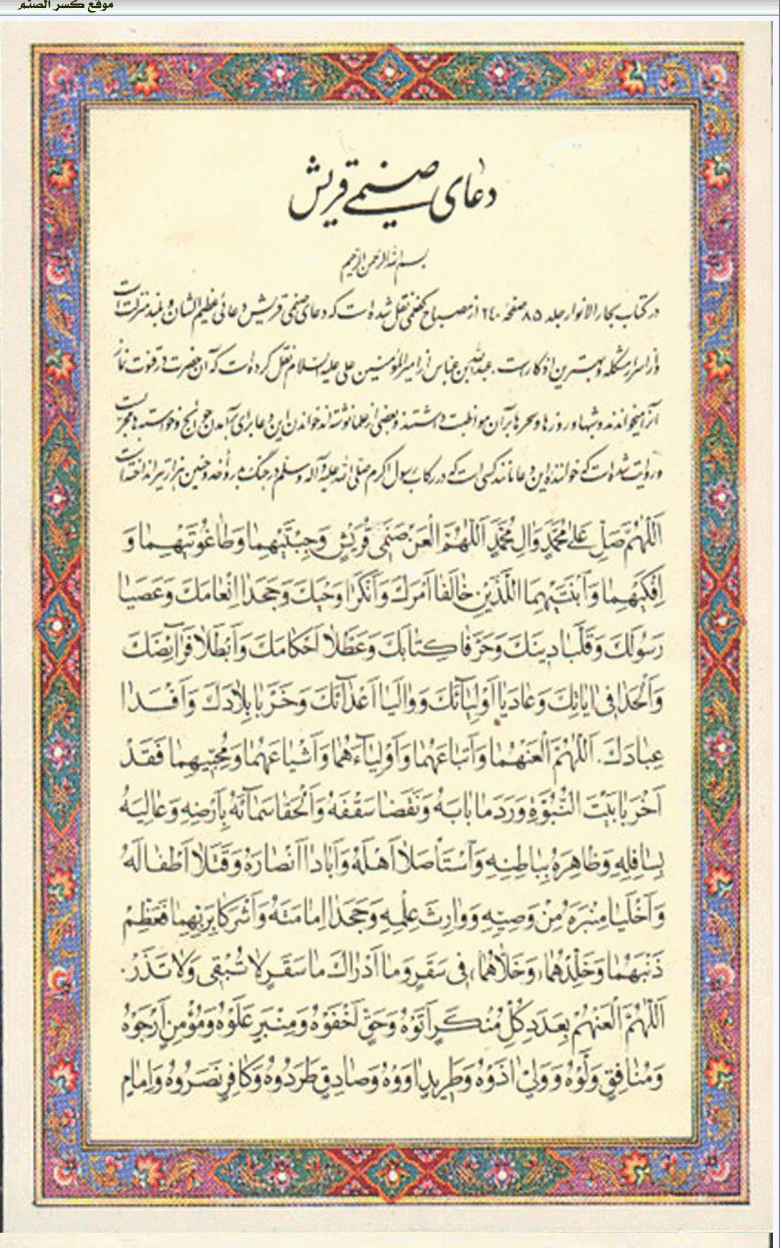 موقع كسر الصنم
دعای صنمی قریش
بسم الله الرحمن الرحیم
در کتاب بحار الانوار جلد ۸۵ صفحهٔ ۲۴۰ از مصباح کفعمی نقل شده است که دعای صنمی قریش دعائی عظیم الشان و بلند منزلت است
و از اسرار مشکله و بهترین اذکار است. عبدالله بن عباس از امیرالمؤمنین علی علیه السلام نقل کرده است که آن حضرت در قنوت نماز
آنرا میخواندند و شبها و روزها و سحرها برآن مواظبت داشتند و بعضی از علما نوشته‌اند خواندن این دعا برای برآمدن حوائج و خواسته‌ها مجرّبست
و روایت شده است که خواننده این دعا مانند کسی است که در رکاب رسول اکرم صلی الله علیه و آله و سلم در جنگ بدر و اُحد و حنین هزار تیر انداخته است
اَللّٰهُمَّ صَلِّ عَلیٰ مُحَمَّدٍ وَالِ مُحَمَّدٍ اَللّٰهُمَّ الْعَنْ صَنَمَیْ قُرَیْشٍ وَجِبْتَیْهِما وَطاغُوتَیْهِما وَ
اِفْکَیْهِما وَابْنَتَیْهِمَا اللَّذَیْنِ خالَفا اَمْرَكَ وَاَنْکَرا وَحْیَكَ وَجَحَدا اِنْعامَكَ وَعَصَیا
رَسُولَكَ وَقَلَّبا دینَكَ وَحَرَّفا کِتابَكَ وَعَطَّلا اَحْکامَكَ وَاَبْطَلا فَرائِضَكَ
وَاَلْحَدا فی ایاتِكَ وَعادَیا اَوْلِیائَكَ وَوالَیا اَعْدائَكَ وَخَرَّبا بِلادَكَ وَاَفْسَدا
عِبادَكَ. اَللّٰهُمَّ الْعَنْهُما وَاَتْباعَهُما وَاَوْلِیاءَهُما وَاَشْیاعَهُما وَمُحِبّیهِما فَقَدْ
اَخْرَبا بَیْتَ النُّبُوَّةِ وَرَدَما بابَهُ وَنَقَضا سَقْفَهُ وَاَلْحَقا سَمائَهُ بِاَرْضِهِ وَعالِیَهُ
بِسافِلِهِ وَظاهِرَهُ بِباطِنِهِ وَاسْتَاْصَلا اَهْلَهُ وَاَبادا اَنْصارَهُ وَقَتَلا اَطْفالَهُ
وَاَخْلَیا مِنْبَرَهُ مِنْ وَصِیِّهِ وَوارِثِ عِلْمِهِ وَجَحَدا اِمامَتَهُ وَاَشْرَکا بِرَبِّهِما فَعَظِّمْ
ذَنْبَهُما وَخَلِّدْهُما (وَخَلِّاهُما) فی سَقَرَ وَما اَدْراكَ ما سَقَرُ لا تُبْقی وَلا تَذَرُ.
اَللّٰهُمَّ الْعَنْهُمْ بِعَدَدِ کُلِّ مُنْکَرٍ اَتَوْهُ وَحَقٍّ اَخْفَوْهُ وَمِنْبَرٍ عَلَوْهُ وَمُؤْمِنٍ اَرْجَوْهُ
وَمُنافِقٍ وَلَّوْهُ وَوَلِیٍّ اذَوْهُ وَطَریدٍ اوَوْهُ وَصادِقٍ طَرَدُوهُ وَکافِرٍ نَصَرُوهُ وَاِمامٍ